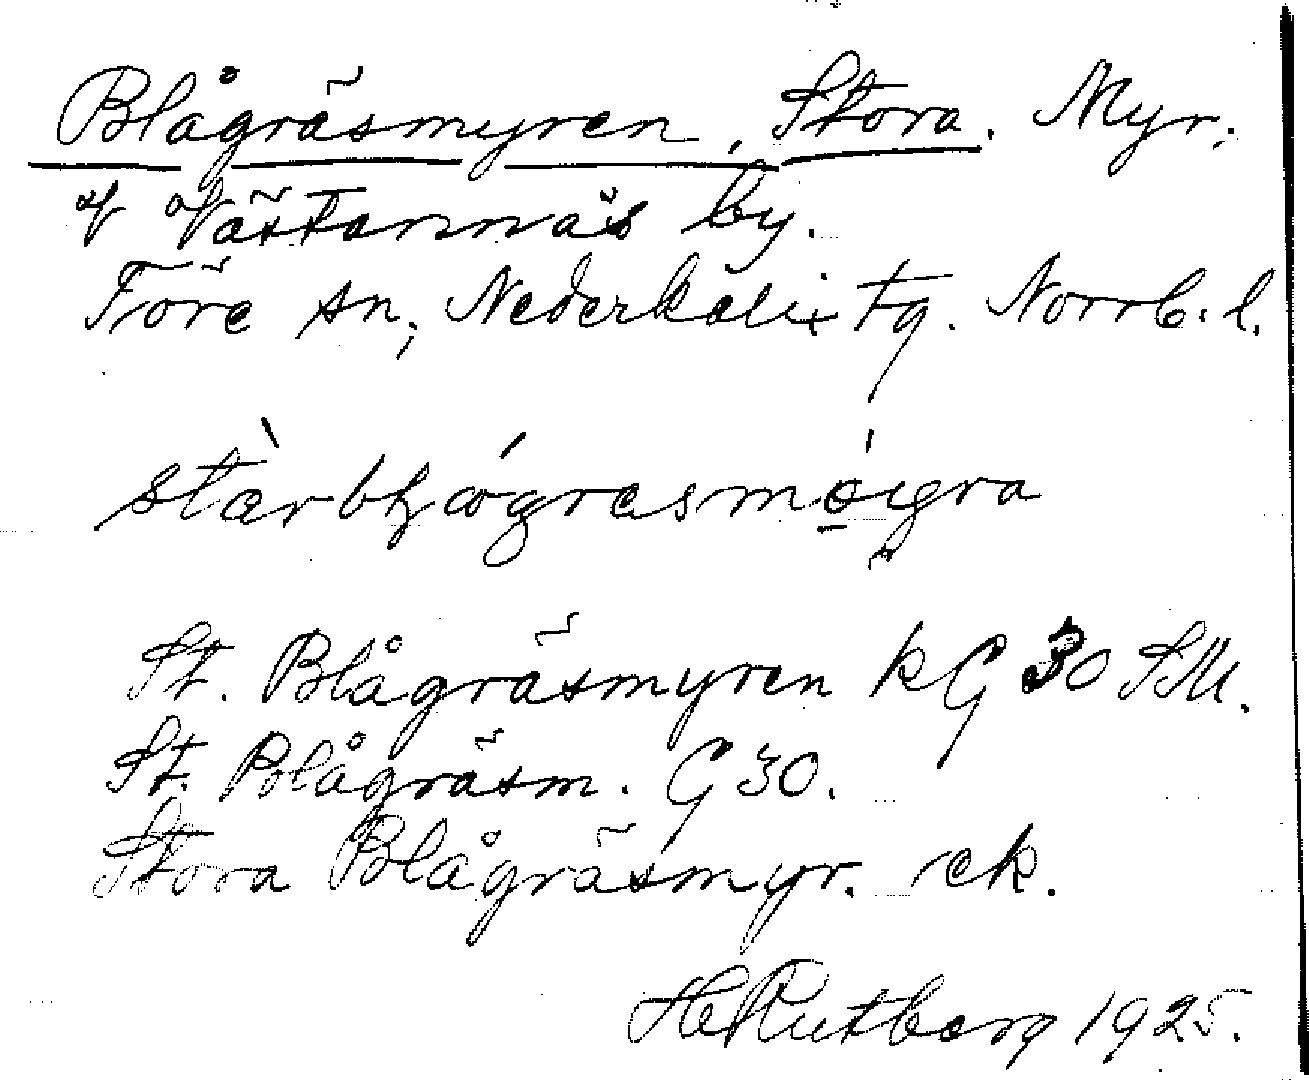 Blågräsmyren, Stora. Myr.
V Västannäs by.
Töre sn, Nederkalix tg. Norrb. l.
St. Blågräsmyren kG 30 SM.
St. Blågräsm. G 30.
Stora Blågräsmyr. ek.
H Rutberg 1925.